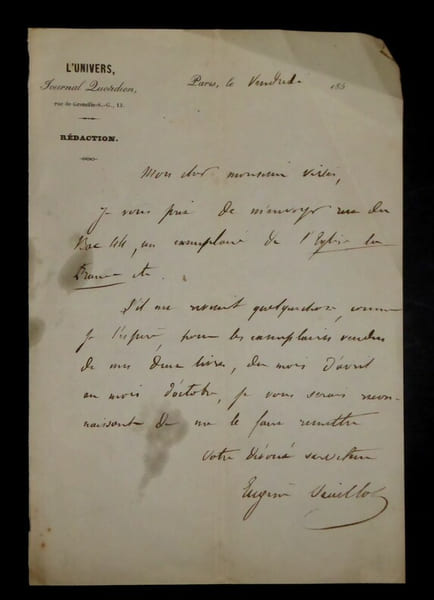 L'UNIVERS,
Journal Quotidien,
rue de Grenelle-S.-G., 13.
RÉDACTION.
Paris, le Vendredi 185
Mon cher monsieur
je vous prie de m'envoyer rue du
Bac 44, un exemplaire de l'Eglise la
France &c.
S'il me revenait quelque chose, comme
je l'espère, pour les exemplaires vendus
de mes deux livres, du mois d'avril
au mois d'octobre, je vous serais recon-
naissant de me le faire remettre
votre dévoué serviteur
Eugène Veuillot